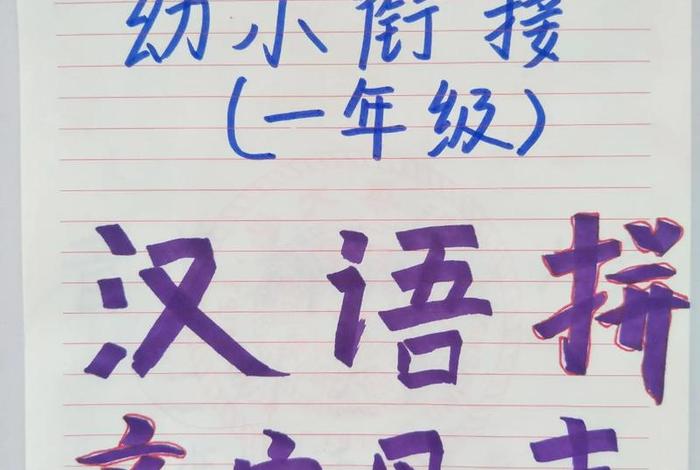 幼小衔接
(一年级)
汉语拼